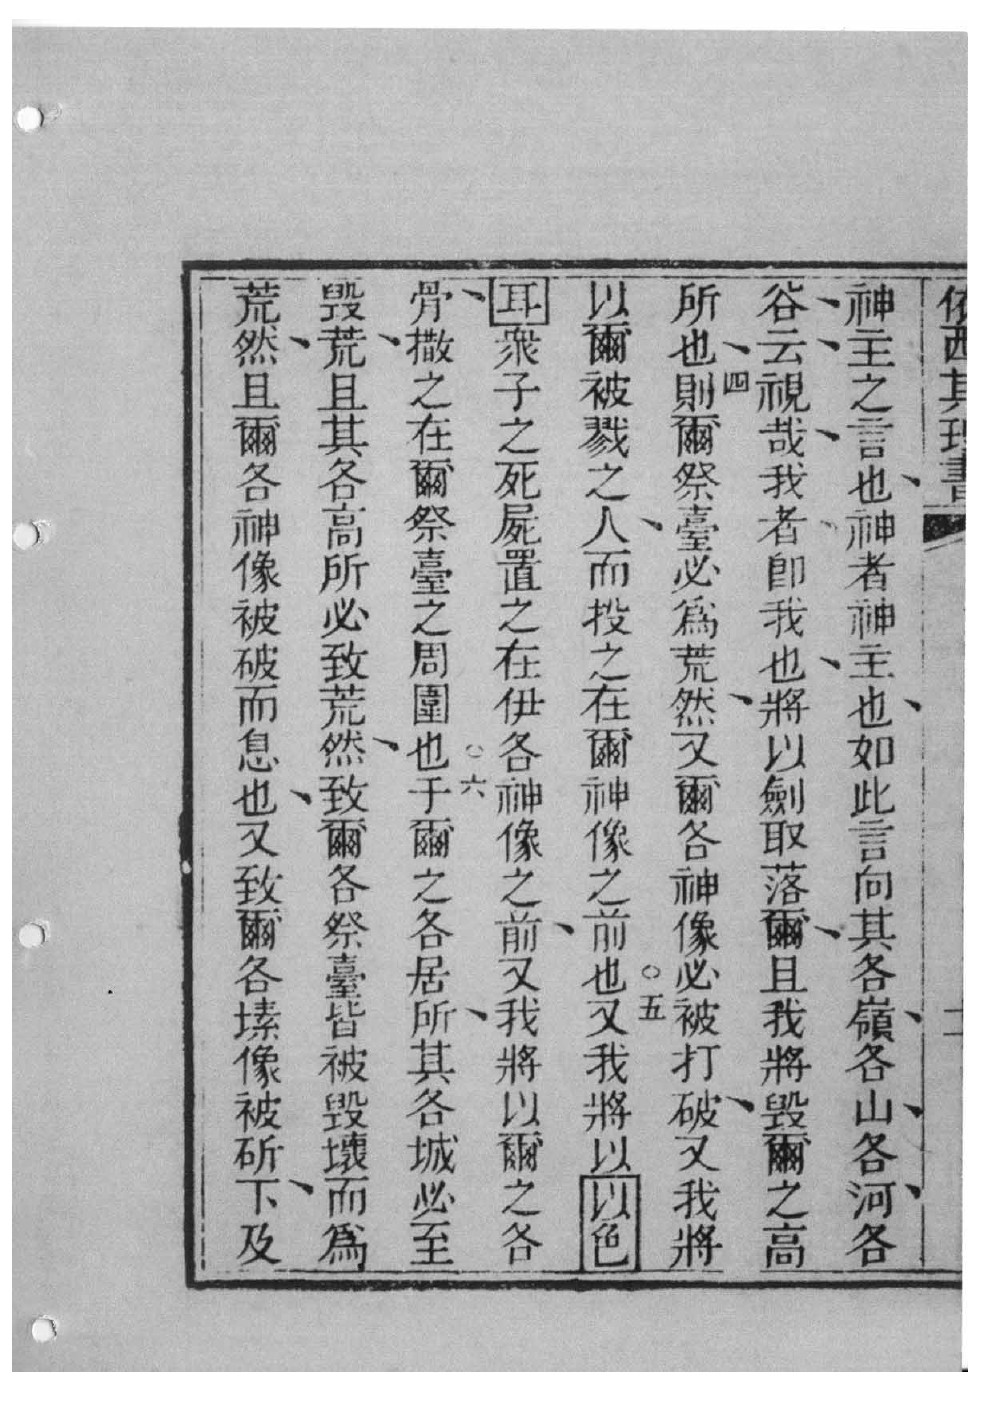 依西其理書 二
神主之言也、神者神主也、如此言向其各嶺、各山、各河、各
谷、云、視哉、我者卽我也、將以劍取落爾、且我將毀爾之高
所也、四則爾祭臺必爲荒然、又爾各神像必被打破、又我將
以爾被戮之人、而投之在爾神像之前也○五又我將以以色
耳衆子之死屍置之在伊各神像之前、又我將以爾之各
骨、撒之在爾祭臺之周圍也○六于爾之各居所、其各城必至
毀荒、且其各高所必致荒然、致爾各祭臺皆被毀壞而爲
荒然、且爾各神像被破而息也、又致爾各塑像被斫下、及